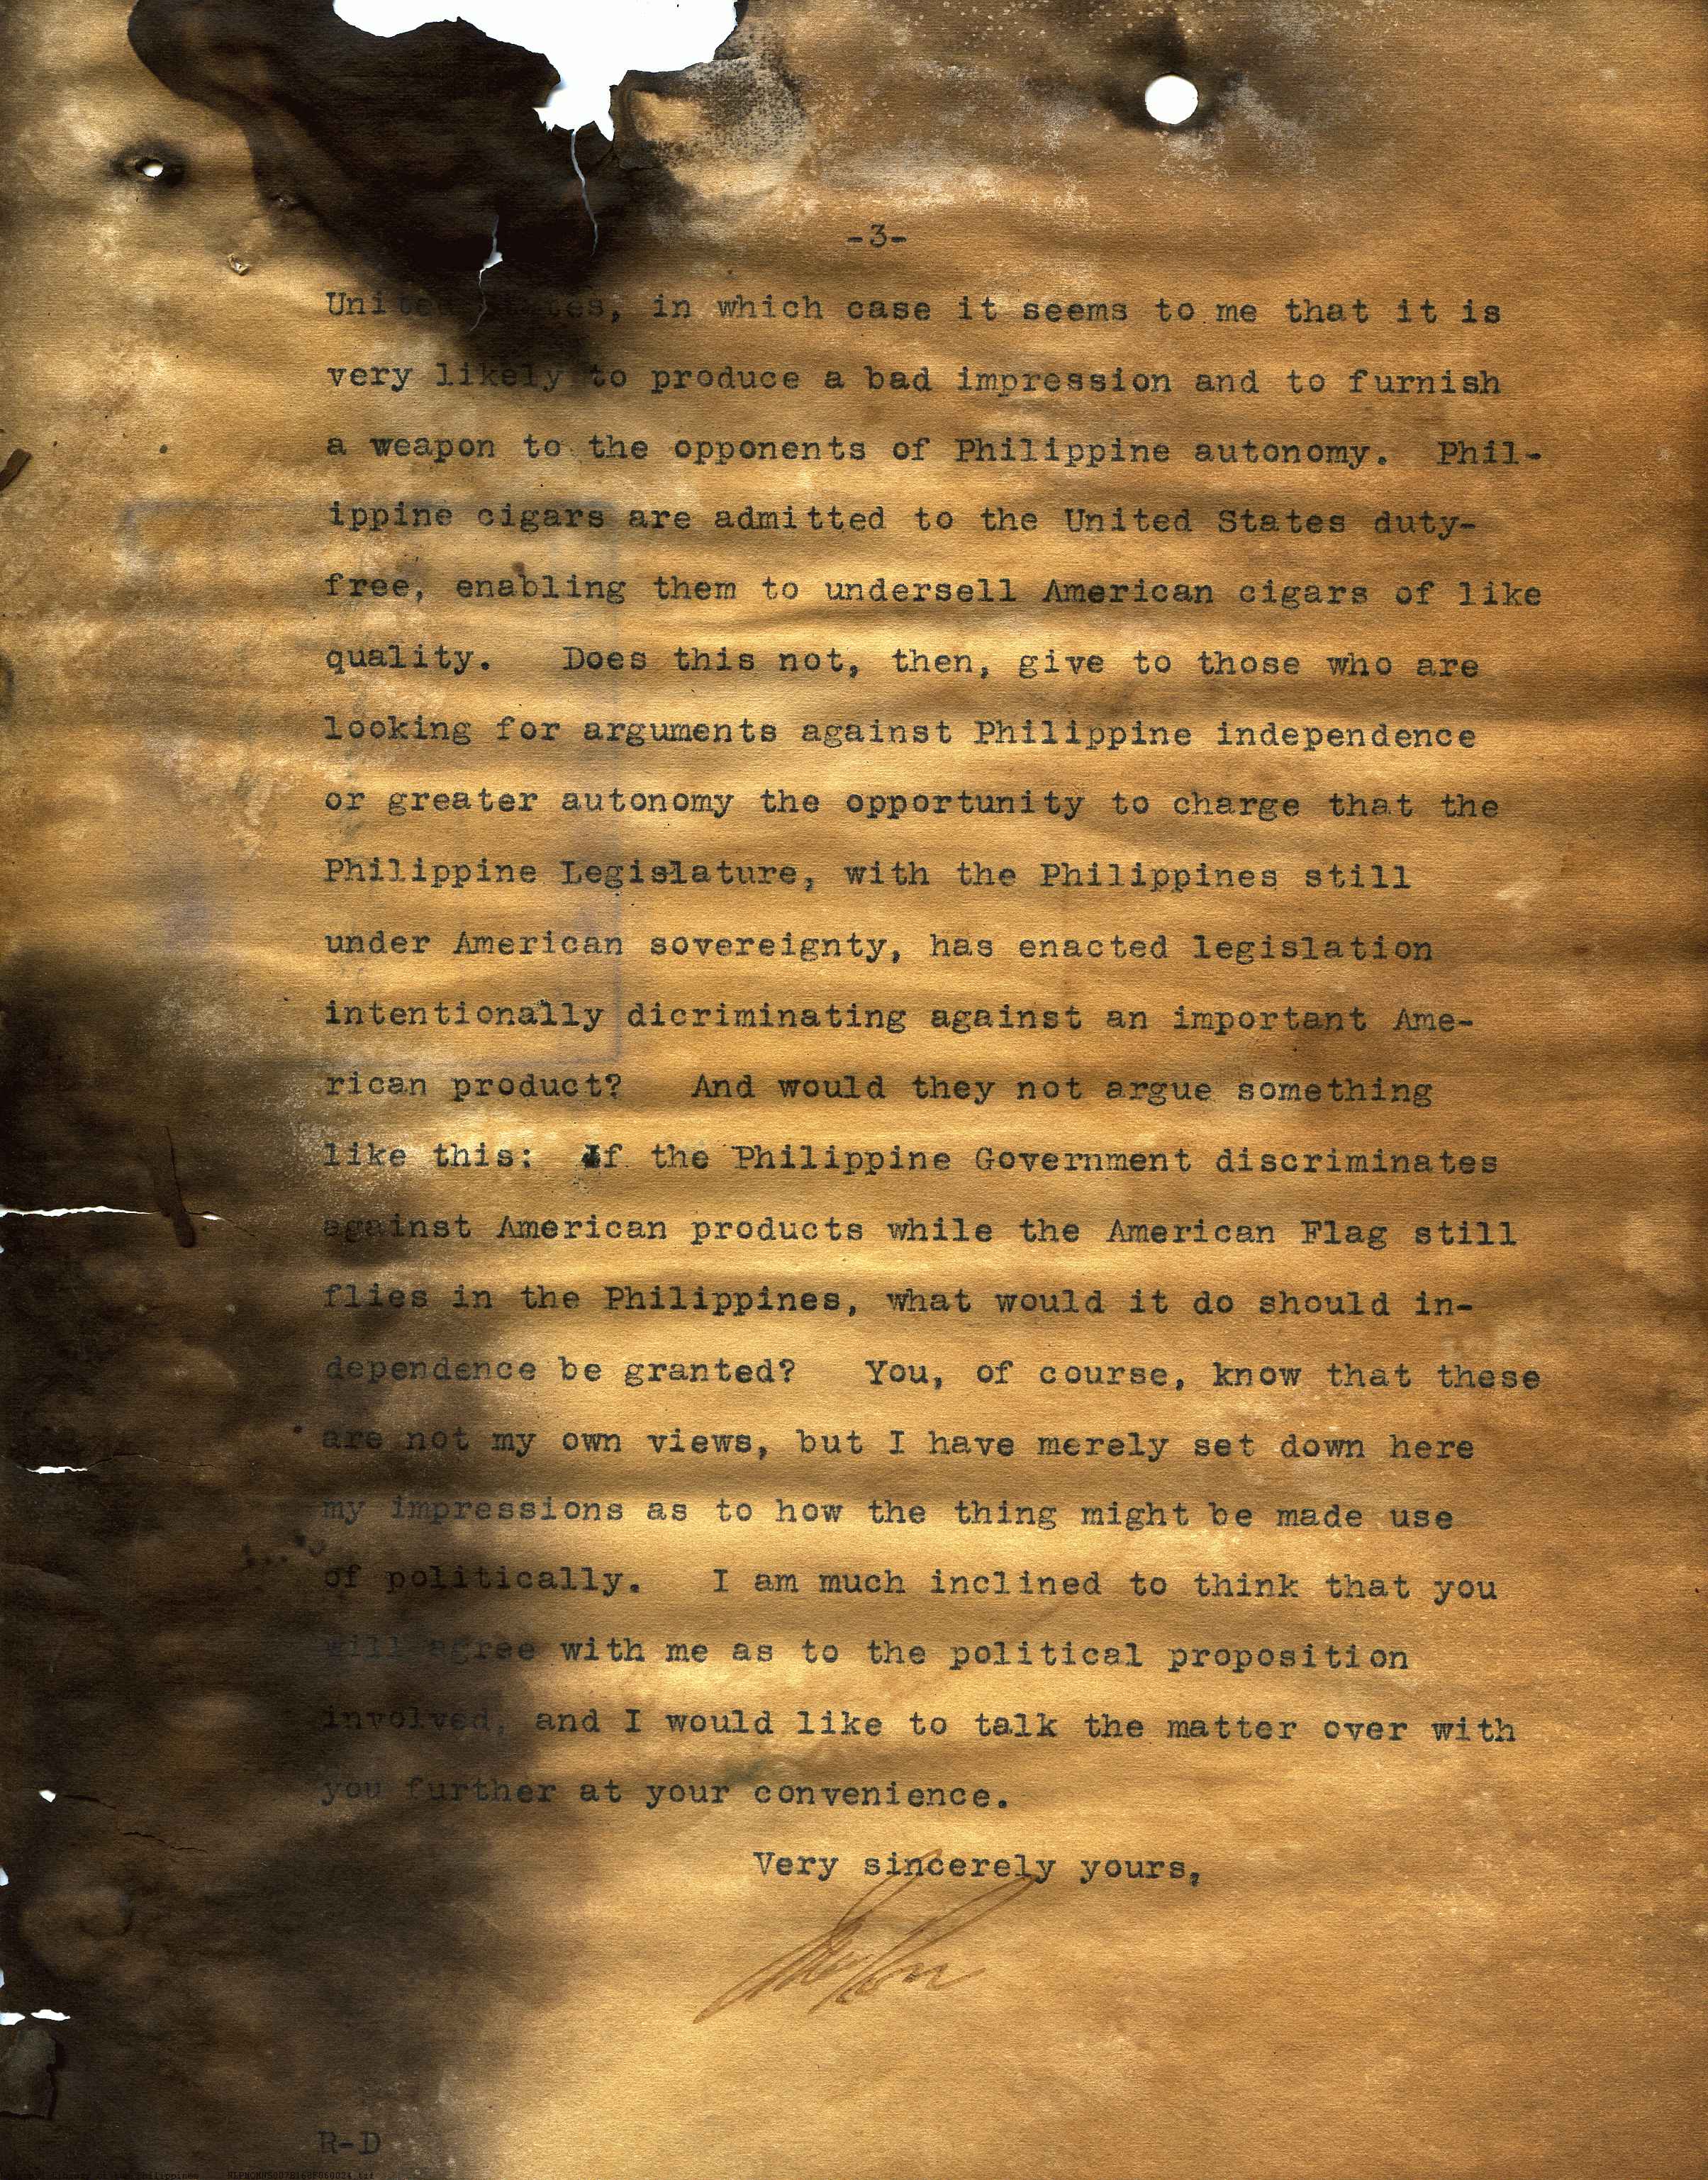 -3-
United States, in which case it seems to me that it is
very likely to produce a bad impression and to furnish
a weapon to the opponents of Philippine autonomy. Phil-
ippine cigars are admitted to the United States duty-
free, enabling them to undersell American cigars of like
quality. Does this not, then, give to those who are
looking for arguments against Philippine independence
or greater autonomy the opportunity to charge that the
Philippine Legislature, with the Philippines still
under American sovereignty, has enacted legislation
intentionally dicriminating against an important Ame-
rican product? And would they not argue something
like this: If the Philippine Government discriminates
against American products while the American Flag still
flies in the Philippines, what would it do should in-
dependence be granted? You, of course, know that these
are not my own views, but I have merely set down here
my impressions as to how the thing might be made use
of politically. I am much inclined to think that you
will agree with me as to the political proposition
involved, and I would like to talk the matter over with
you further at your convenience.
Very sincerely yours,
R-D